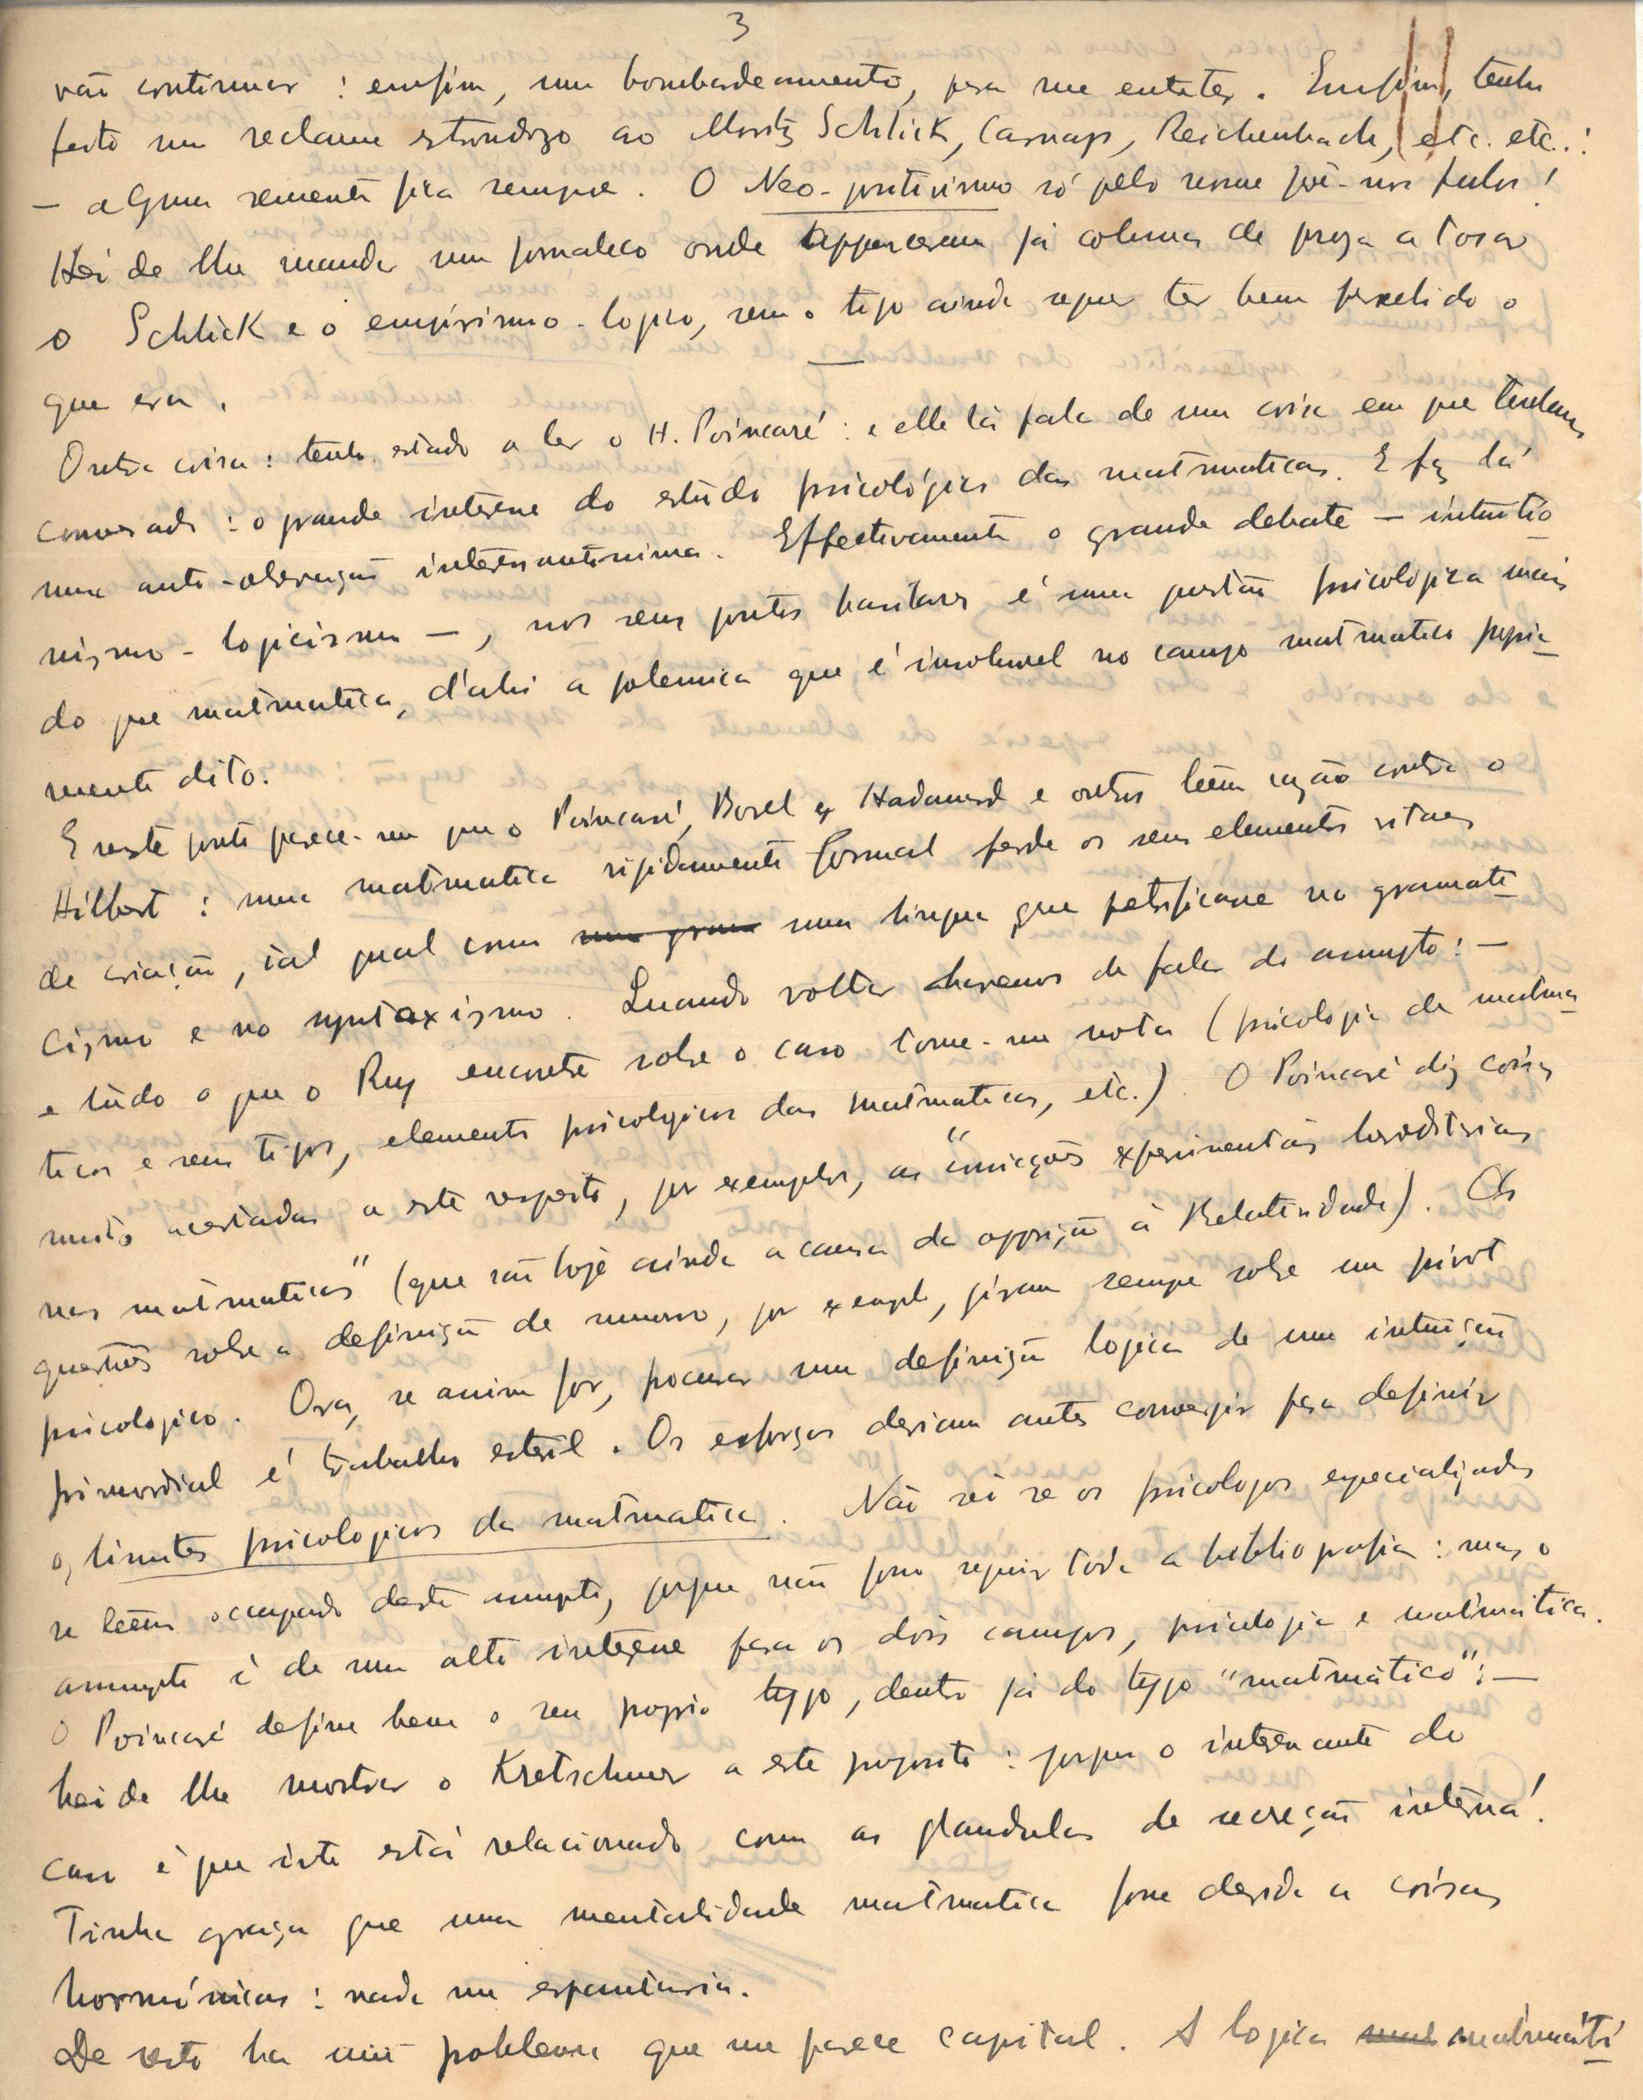 3
vão continuar : emfim, um bombardeamento, para me entreter. Emfim, tenho
feito um reclame estrondozo ao Moritz Schlick, Carnap, Reichenbach, etc. etc.:
— alguma semente fica sempre. O Neo-positivismo só pelo nome põe-nos fulos!
Hei de lhe mandar um jornaleco onde appareceram já colunas de proza a tosar
o Schlick e o empirismo-logico, sem o tipo ainda sequer ter bem percebido o
que era.
Outra coisa: tenho estado a ler o H. Poincaré: e elle lá fala de uma coisa em que tenhamos
conversado: o grande interesse do estudo psicológico das matematicas. E faz lá
uma auto-observação interessantissima. Effectivamente o grande debate — intuitio
nismo-logicismo —, nos seus pontos basilares é uma questão psicológica mais
do que matematica, d'ahi a polemica que é insoluvel no campo matematico propria
mente dito.
E neste ponto parece-me que o Poincaré, Borel e Hadamard e outros teem razão contra o
Hilbert : uma matematica rigidamente formal perde os seus elementos vitaes
de criação, tal qual como uma lingua que petrificasse no gramati
cismo e no syntaxismo. Quando voltar havemos de falar do assumpto: —
e tudo o que o Ruy encontre sobre o caso tome-me nota (psicologia da matema
ticos, e seus tipos, elementos psicologicos das matematicas, etc.) O Poincaré diz coisas
muito acertadas a este respeito, por exemplos, as "convicções experimentaes hereditarias
nas matematicas" (que são hoje ainda a causa da opposição á Relatividade). As
questões sobre a definição de numero, por exemplo, giram sempre sobre um pivot
psicologico. Ora, se assim for, procurar uma definição logica de uma intuição
primordial é trabalho esteril. Os esforços deviam antes convergir para definir
os limites psicologicos da matematica. Não sei se os psicologos especializados
se teem occupado deste assumpto, porque não posso seguir toda a bibliografia : mas o
assumpto é de um alto interesse para os dois campos, psicologia e matemática.
O Poincaré define bem o seu proprio typo, dentro já do typo "matemático": —
hei de lhe mostrar o Kretschmer a este proposito : porque o interessante do
caso é que isto está relacionado com as glandulas de secreção interna!
Tinha graça que uma mentalidade matematica fosse devida a coisas
hormónicas : nada me espantaria.
De resto ha um poblema que me parece capital. A logica matemáti